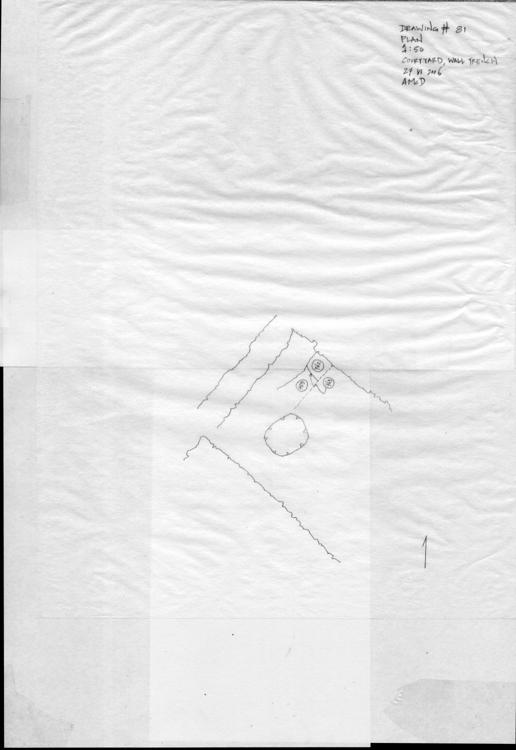 DRAWING # 81
PLAN
1:50
COURTYARD, WALL TRENCH
29 VI 2006
AMcD